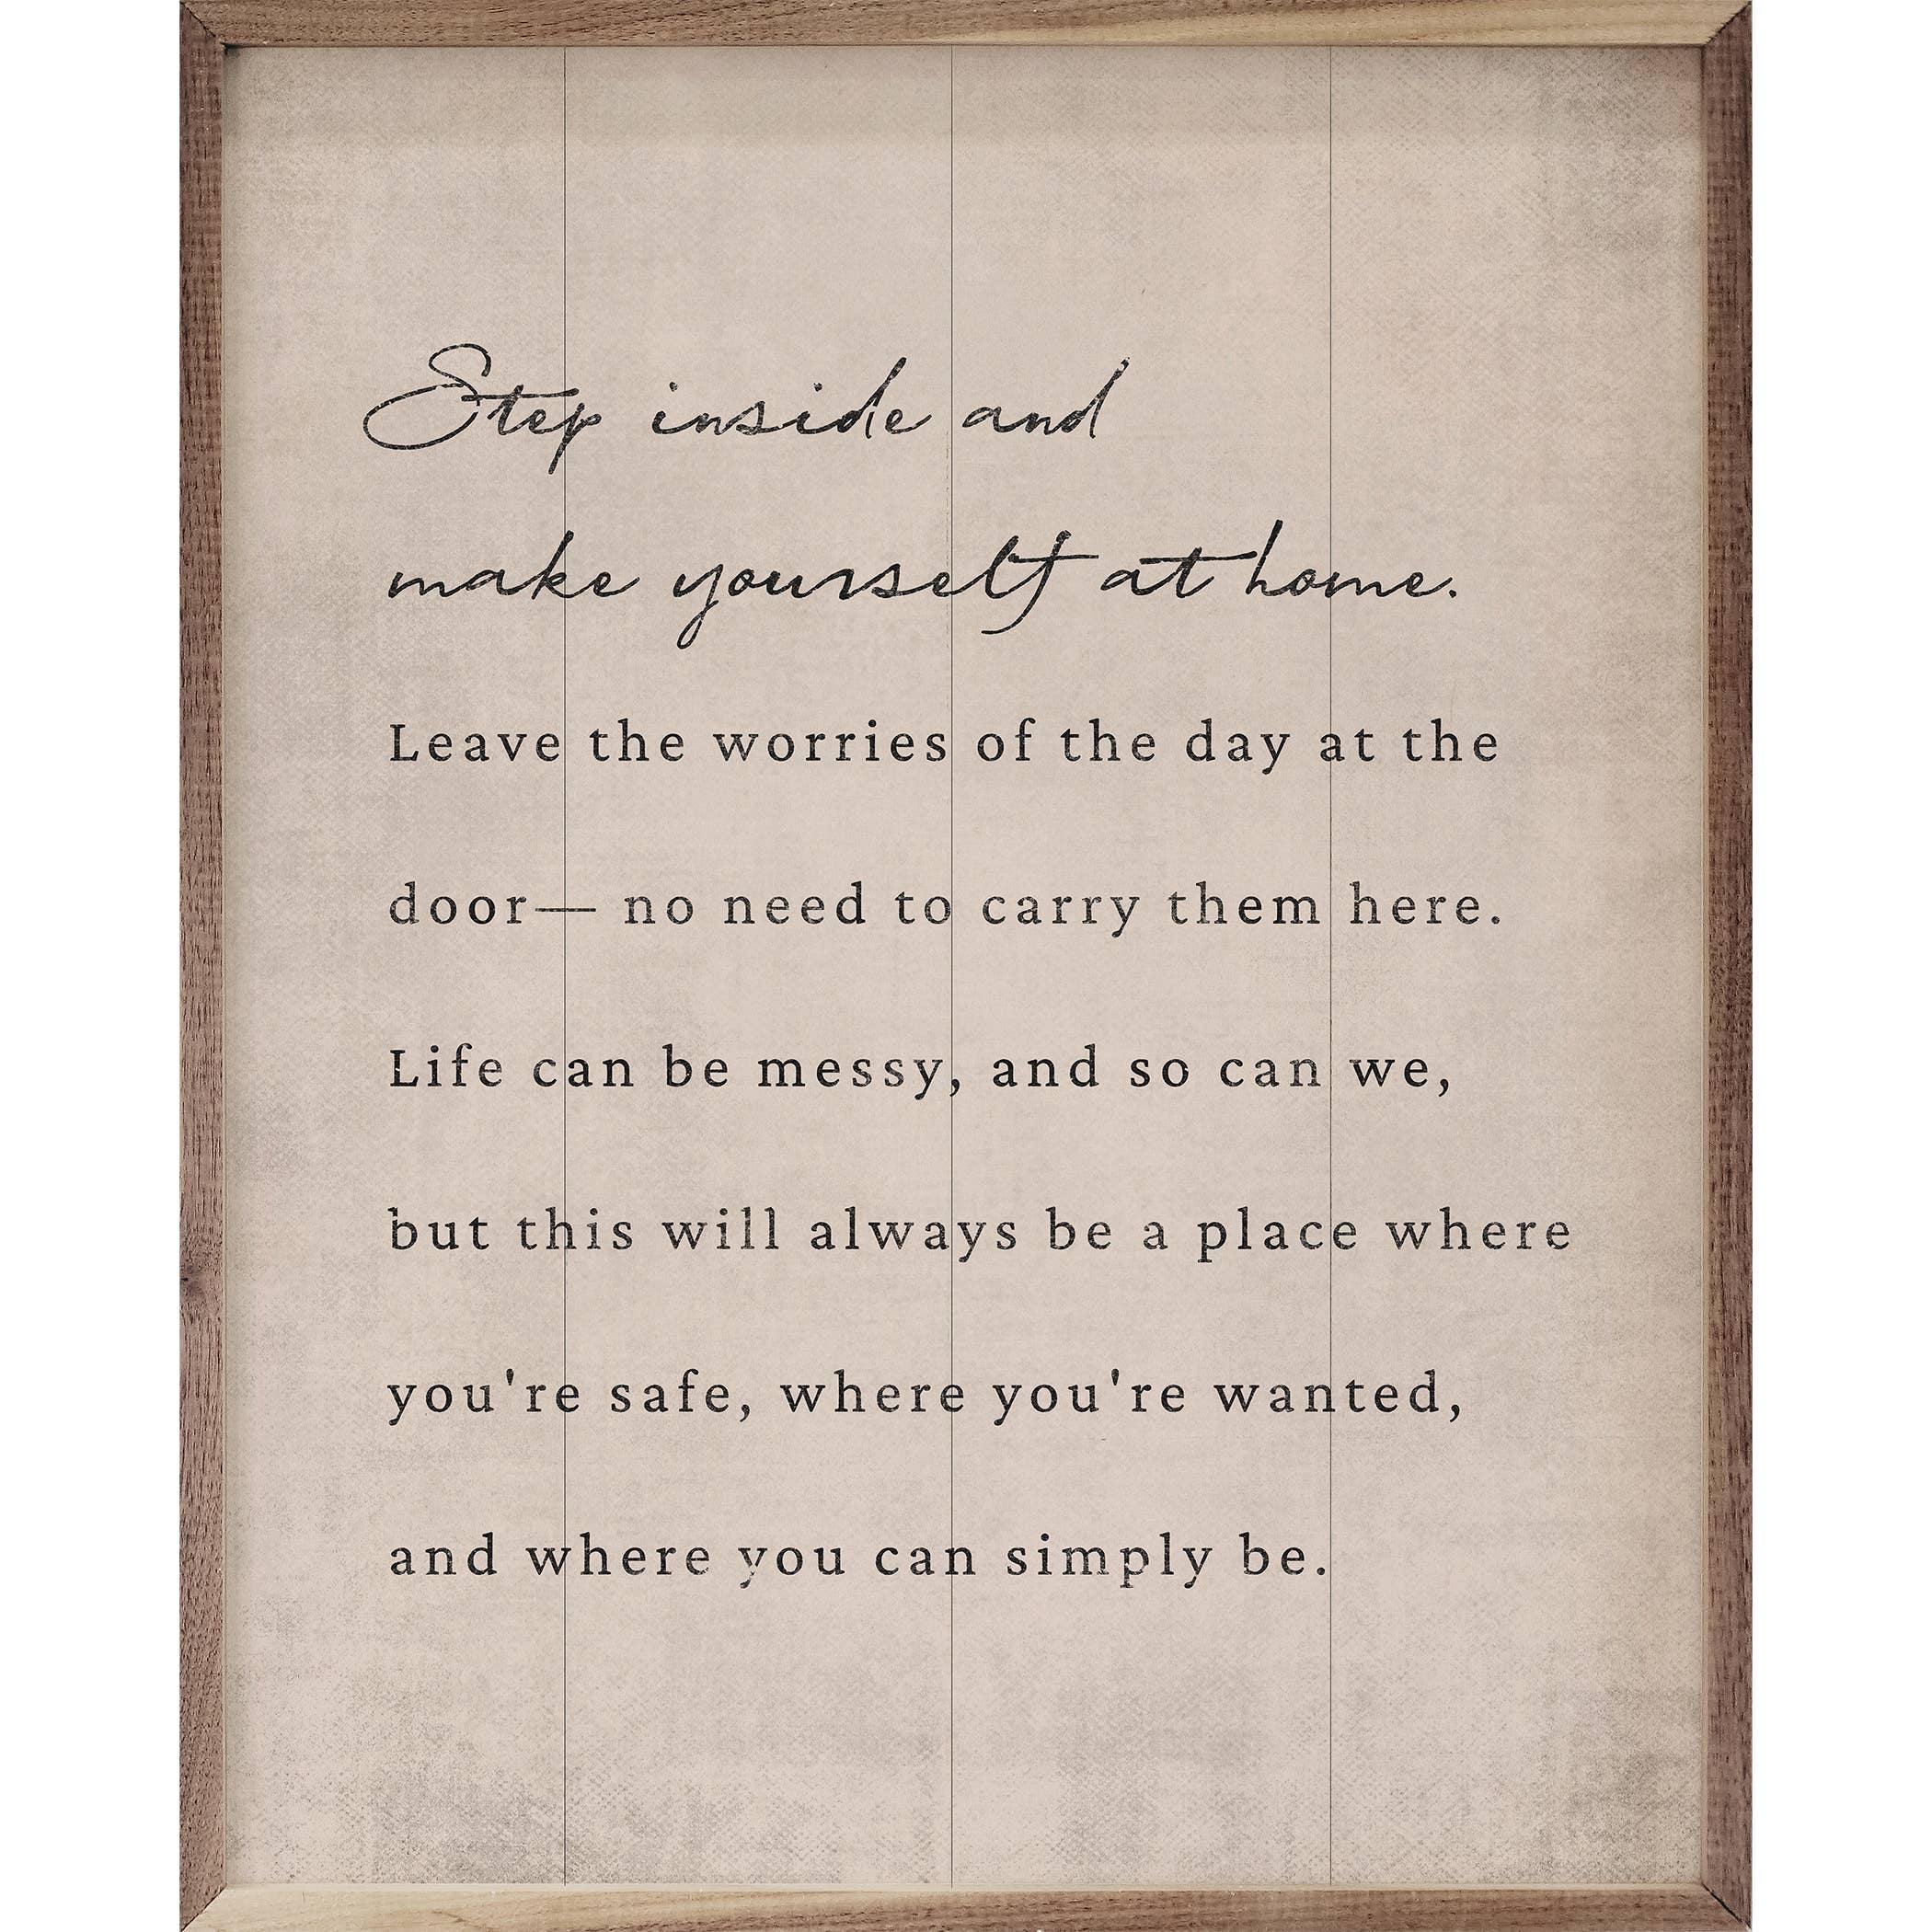 Step inside and
make yourself at home.
Leave the worries of the day at the
door— no need to carry them here.
Life can be messy, and so can we,
but this will always be a place where
you're safe, where you're wanted,
and where you can simply be.